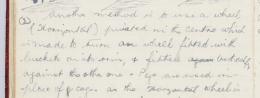 Another method is to use a wheel
(Horizontal) pivoted in the centre which
is made to turn one wheel fitted with
buckets on its rim, &
against the other one + Pegs are used in
place of cogs as the Horizontal wheel is